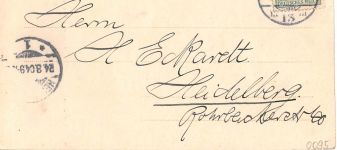 Herrn
H Eckardt.
Heidelberg.
Rohrbacherstr 60
0095